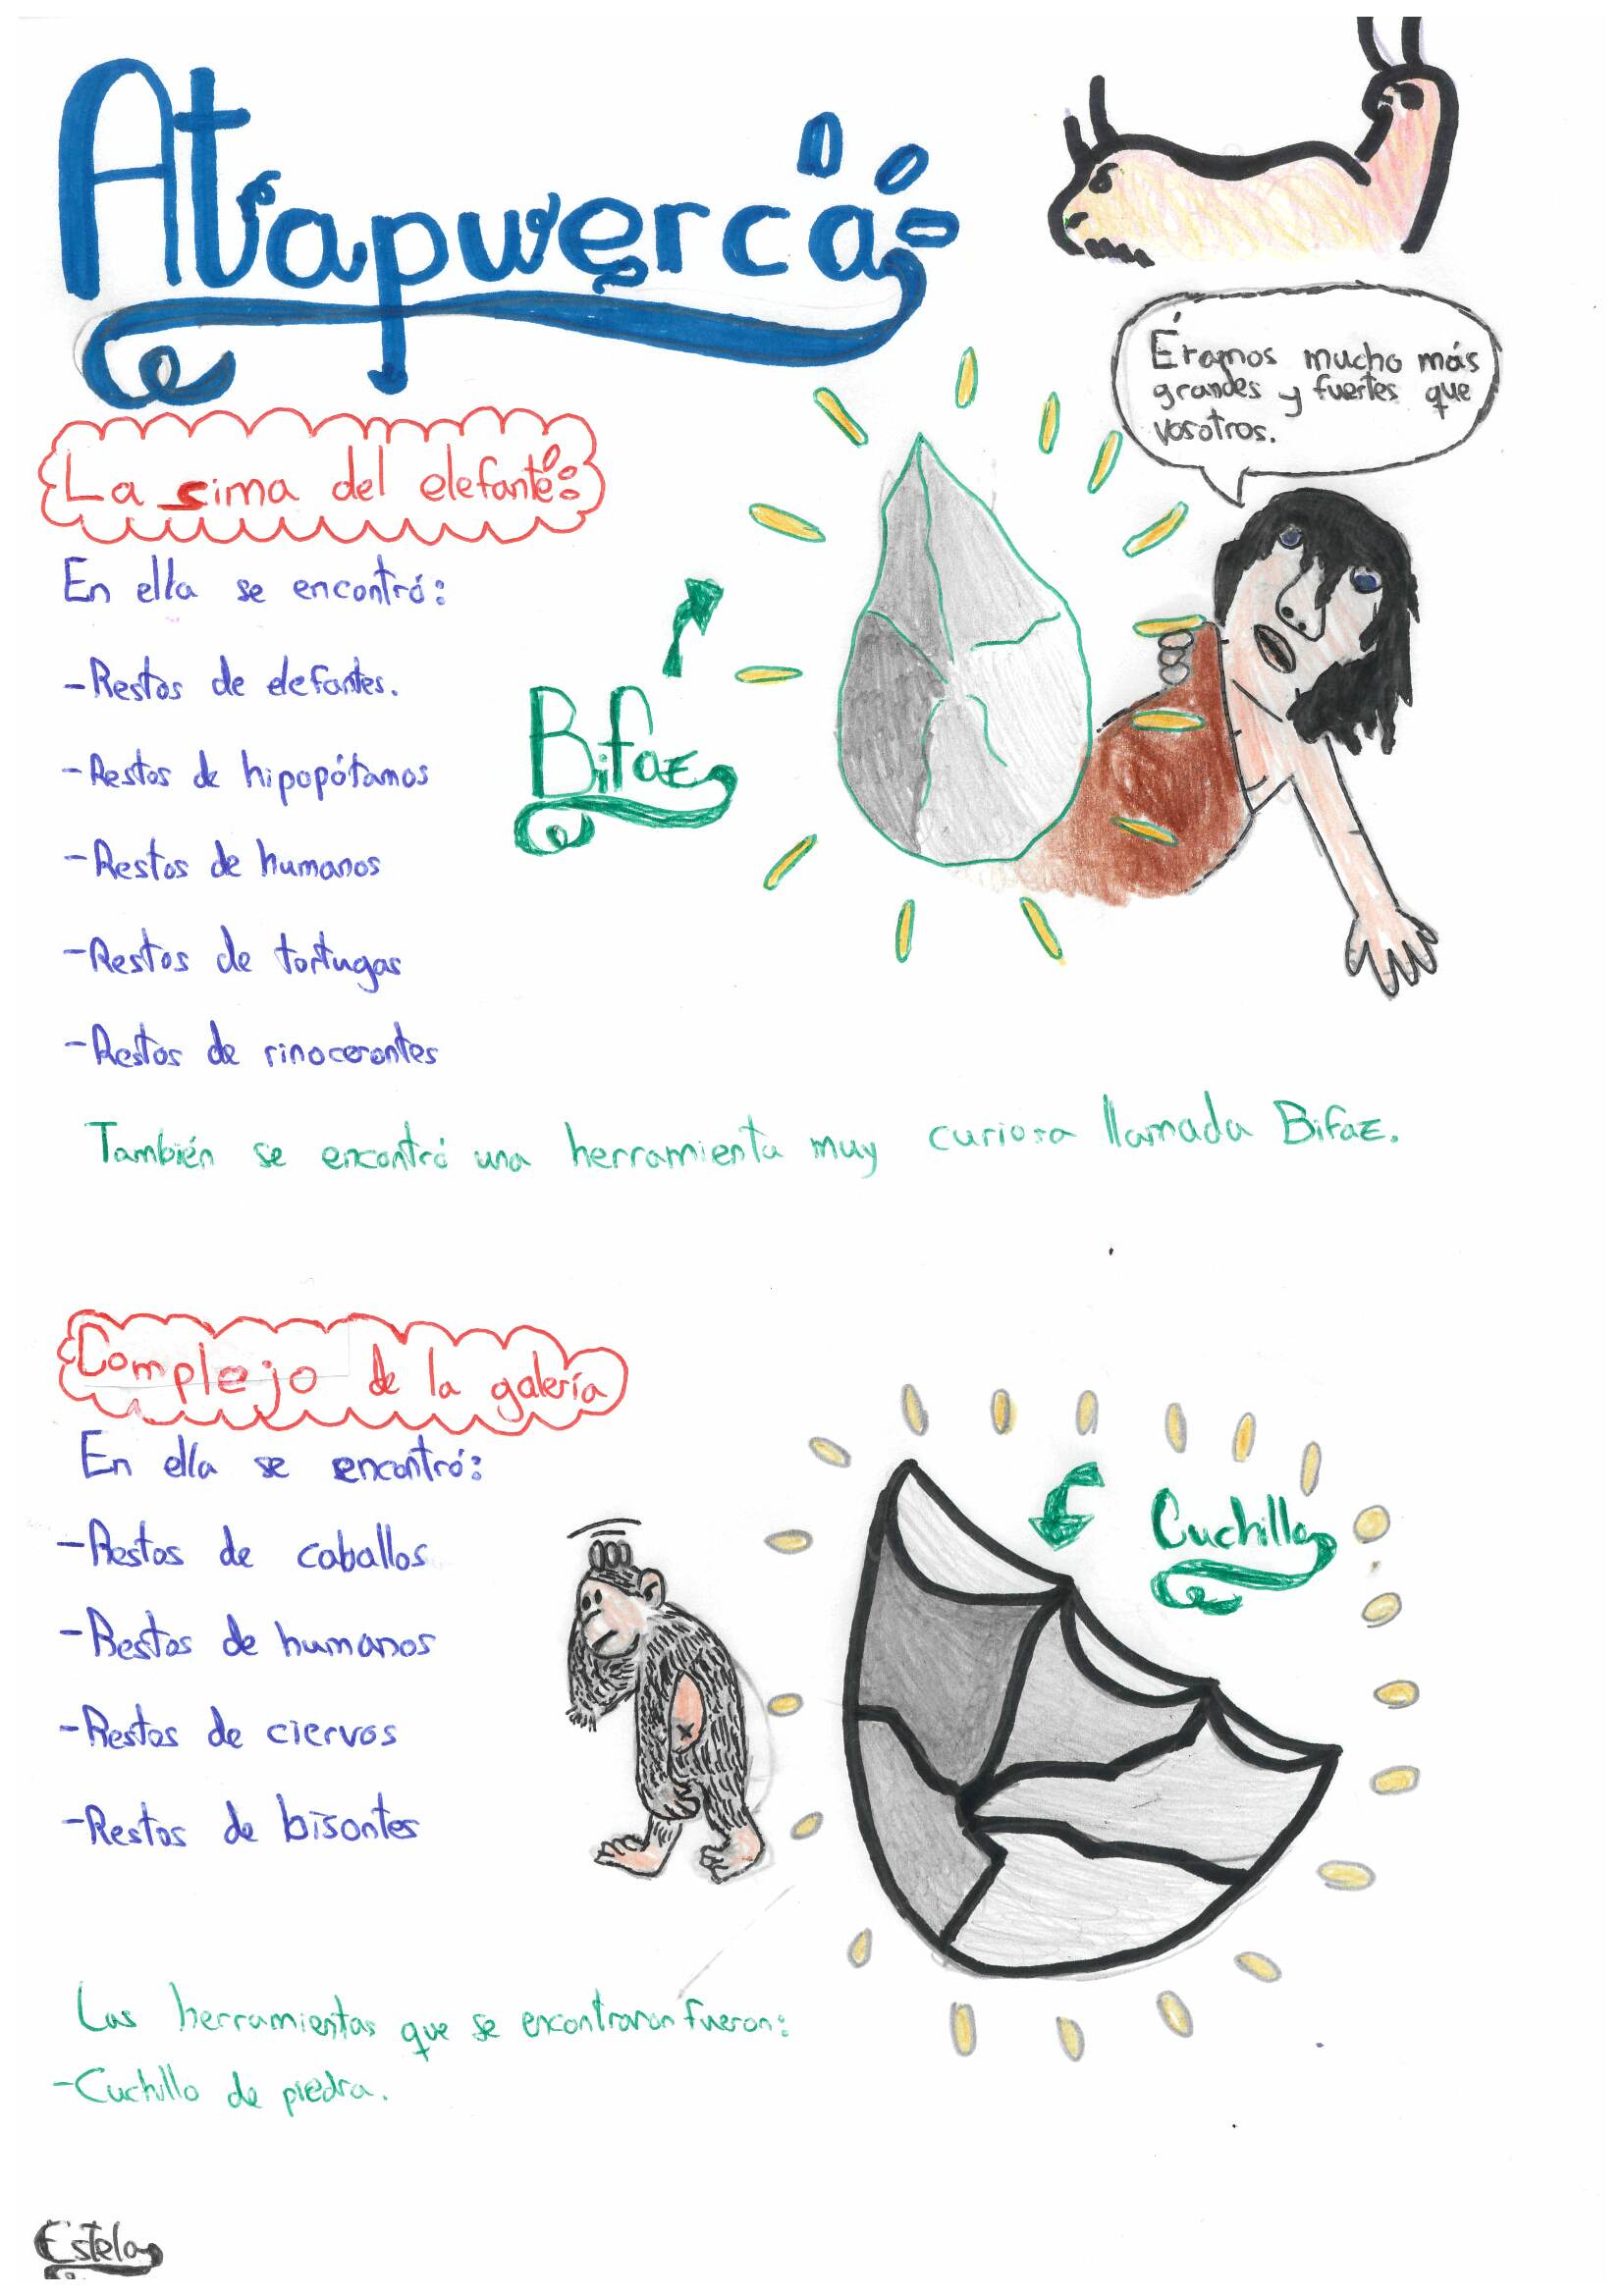 Atapuerca
Éramos mucho más
grandes y fuertes que
vosotros.
La sima del elefante:
En ella se encontró:
-Restos de elefantes.
-Restos de hipopótamos
Bifaz
-Restos de humanos
-Restos de tortugas
-Restos de rinocerontes
También se encontró una herramienta muy curiosa llamada Bifaz.
Complejo de la galería
En ella se encontró:
Cuchillo
-Restos de caballos
-Restos de humanos
-Restos de ciervos
-Restos de bisontes
Las herramientas que se encontraron fueron:
-Cuchillo de piedra.
Estela